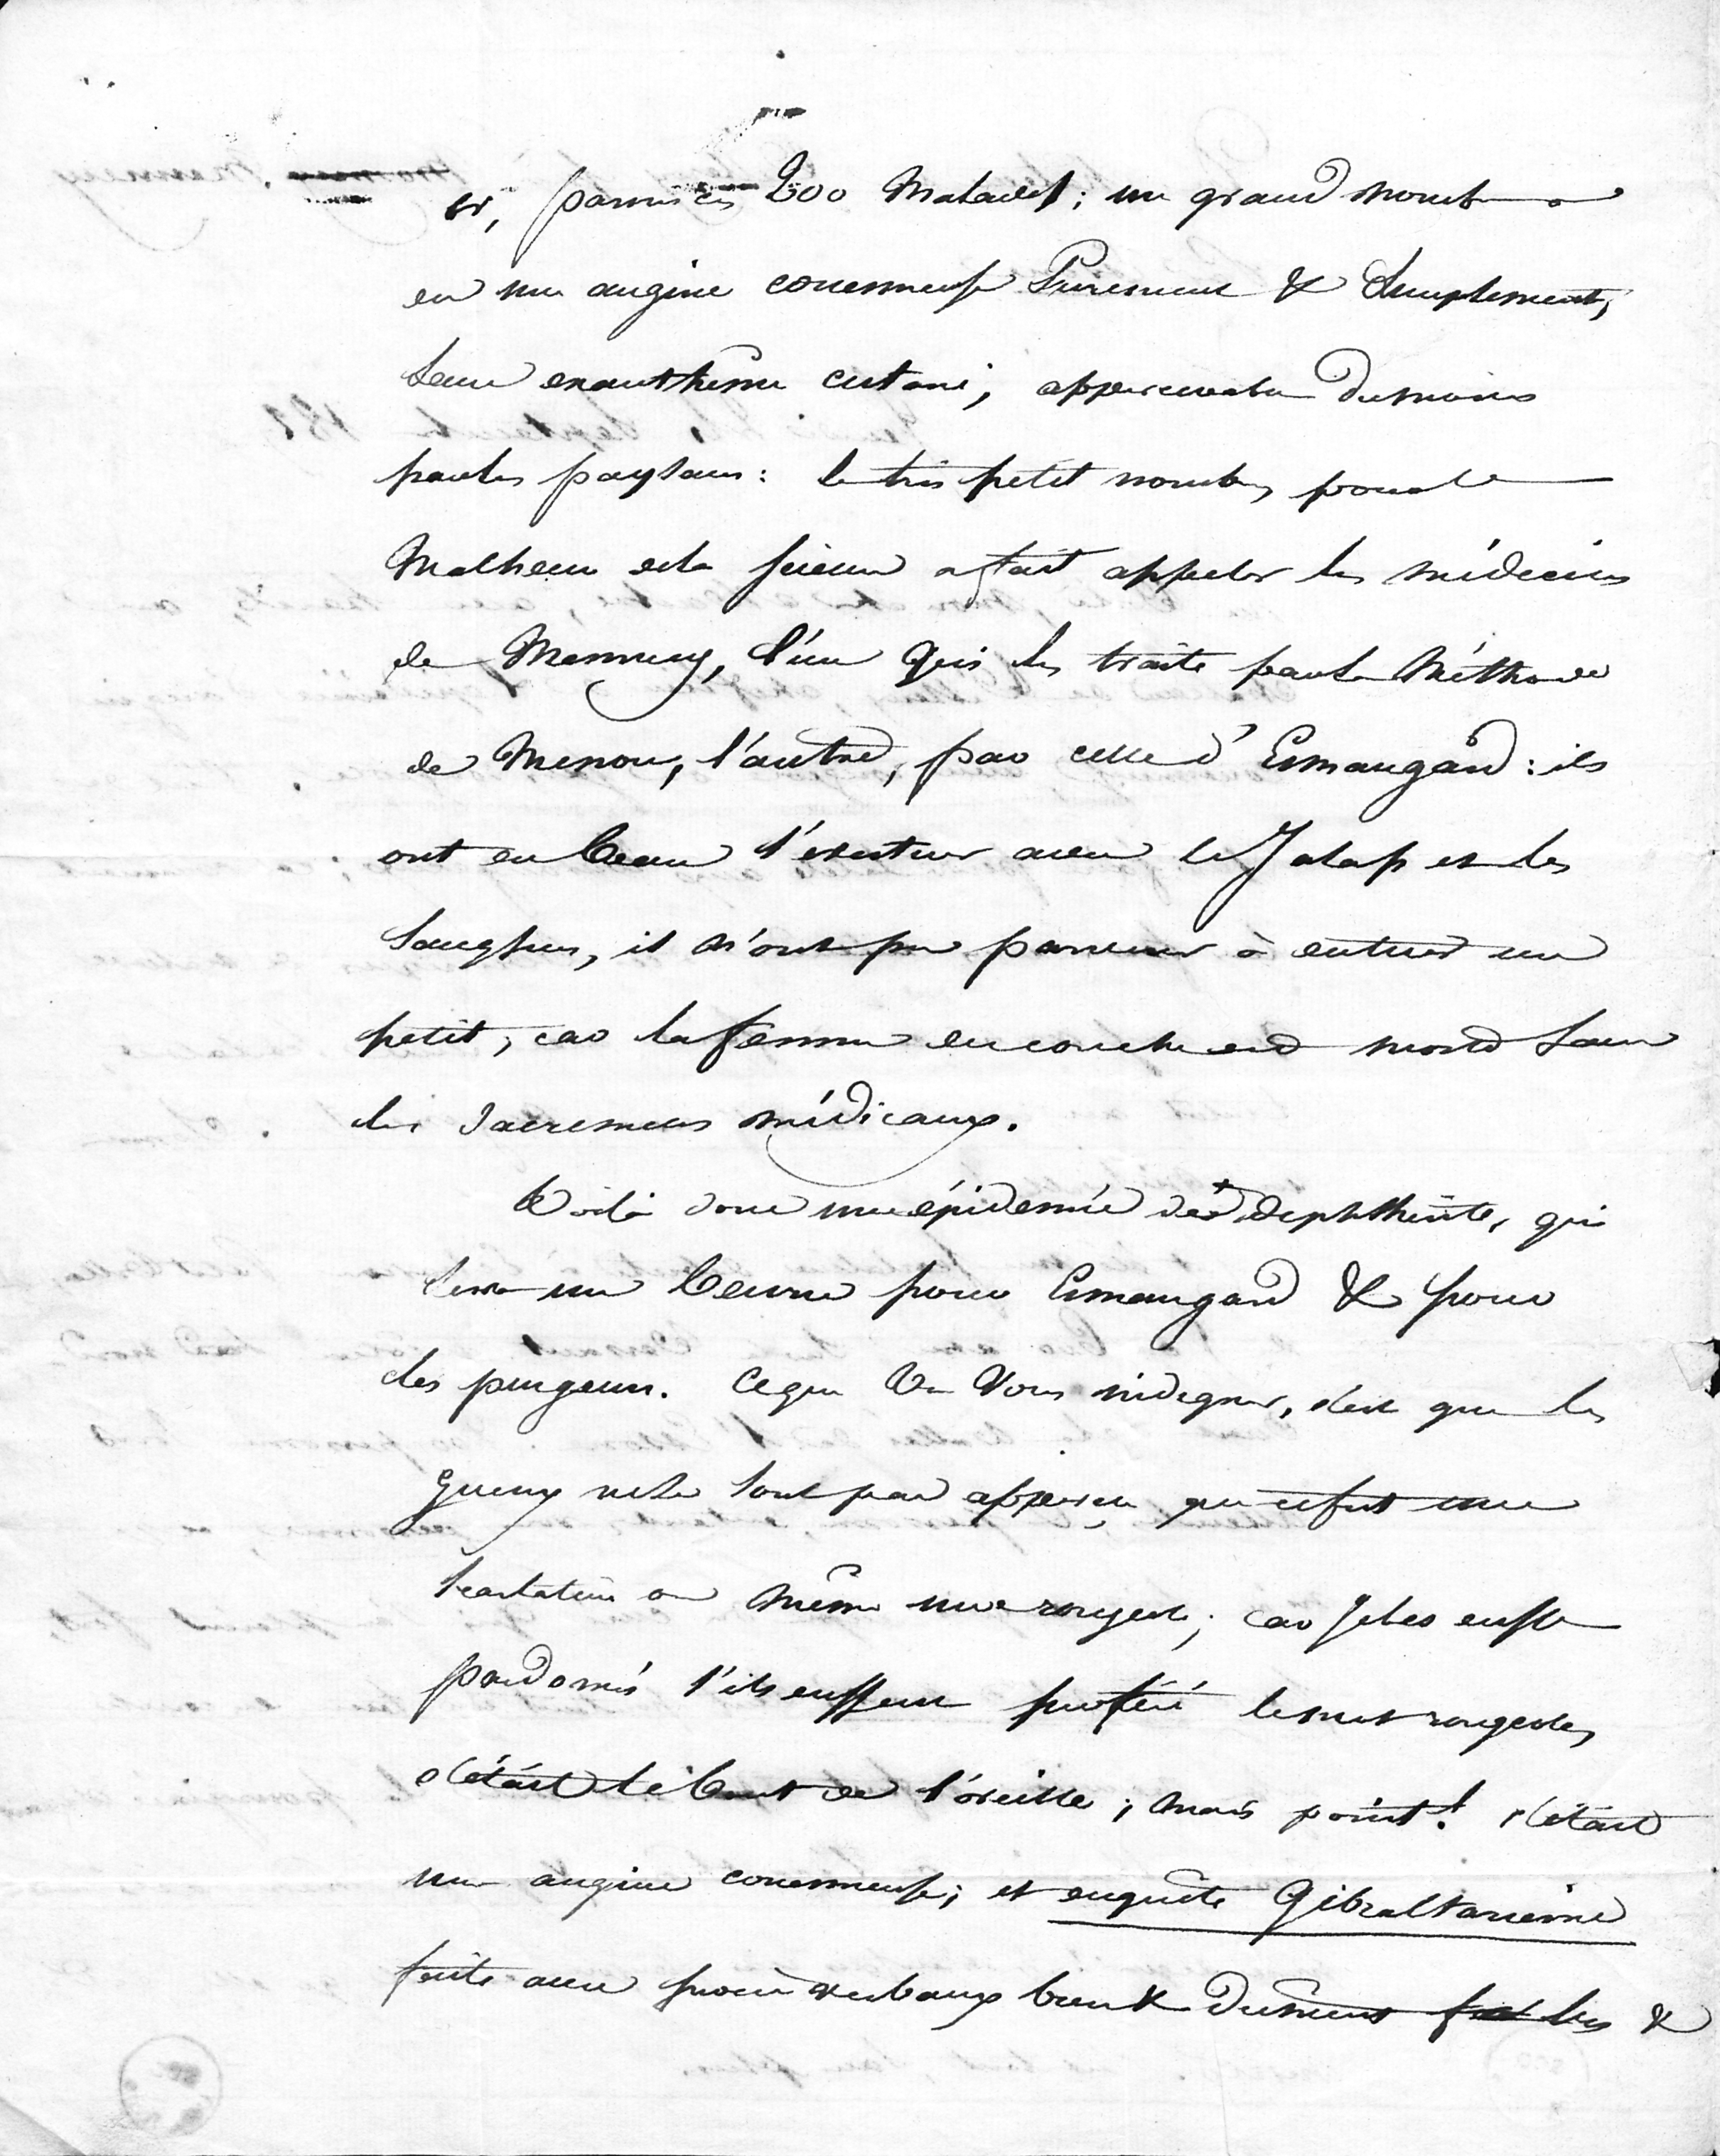 et, parmi ces 200 Malades; un grand nombre
eu une angine couenneuse Purement & Simplement,
sans exanthême cutané, appercevable du moins
par les paysans: le très petit nombre, pour le
Malheur de la science a fait appeler les médecins
de Mennecy, l'un qui les traite par la Méthode
de Menou, l'autre, par celle d'Emangard: ils
ont eu beau s'évertuer avec le Jalap et les
Sangsues, il n'ont pu parvenir à en tuer un
petit, car la femme en couche est morte sans
les sacremens médicaux.
Voilà donc une épidémie de diphthérite, qui
sera un beurre pour Emangard & pour
les purgeurs. Ce qui va vous indigner, c'est que les
gueux ne se sont pas apperçu que ce fut une
scarlatine ou même une rougeole; car je les eusse
pardonnés s'ils eussent proféré le mot rougeole,
c'était le bout de l'oreille; mais point! c'était
une angine couenneuse; et enquête Gibraltarienne
faite avec procès verbaux bien & dument lus &